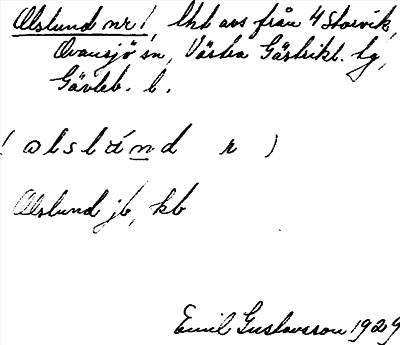 Alslund nr 1, lht avs från 4 Storvik,
Ovansjö sn, Västra Gästrikl. tg,
Gävleb. l.
( alslund r )
Alslund jb, kb
Emil Gustavsson 1929